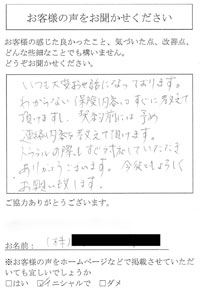 お客様の声をお聞かせください
お客様の感じた良かったこと、気づいた点、改善点、
どんな些細なことでも構いません。
どうぞお聞かせください。
いつも大変お世話になっております。
わからない保険内容はすぐに教えて
頂けますし、契約前には予め
連絡内容を教えて頂けます。
トラブルの際もすぐ対応していただき
ありがとうございます。今後ともよろしく
お願い致します。
ご協力ありがとうございます。
お名前： (株)
※お客様の声をホームページなどで掲載させていただ
いても宜しいでしょうか
□はい ☑イニシャルで □ダメ